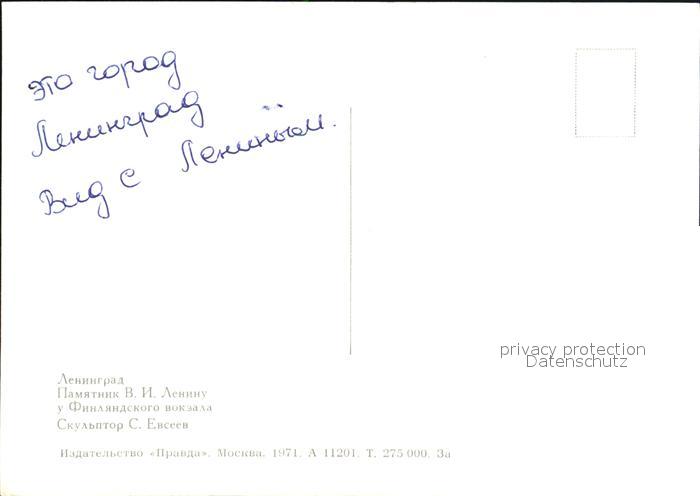 Это город
Ленинград
Вид с Лениным.
privacy protection
Datenschutz
Ленинград
Памятник В. И. Ленину
у Финляндского вокзала
Скульптор С. Евсеев
Издательство «Правда». Москва. 1971. А 11201. Т. 275 000. За